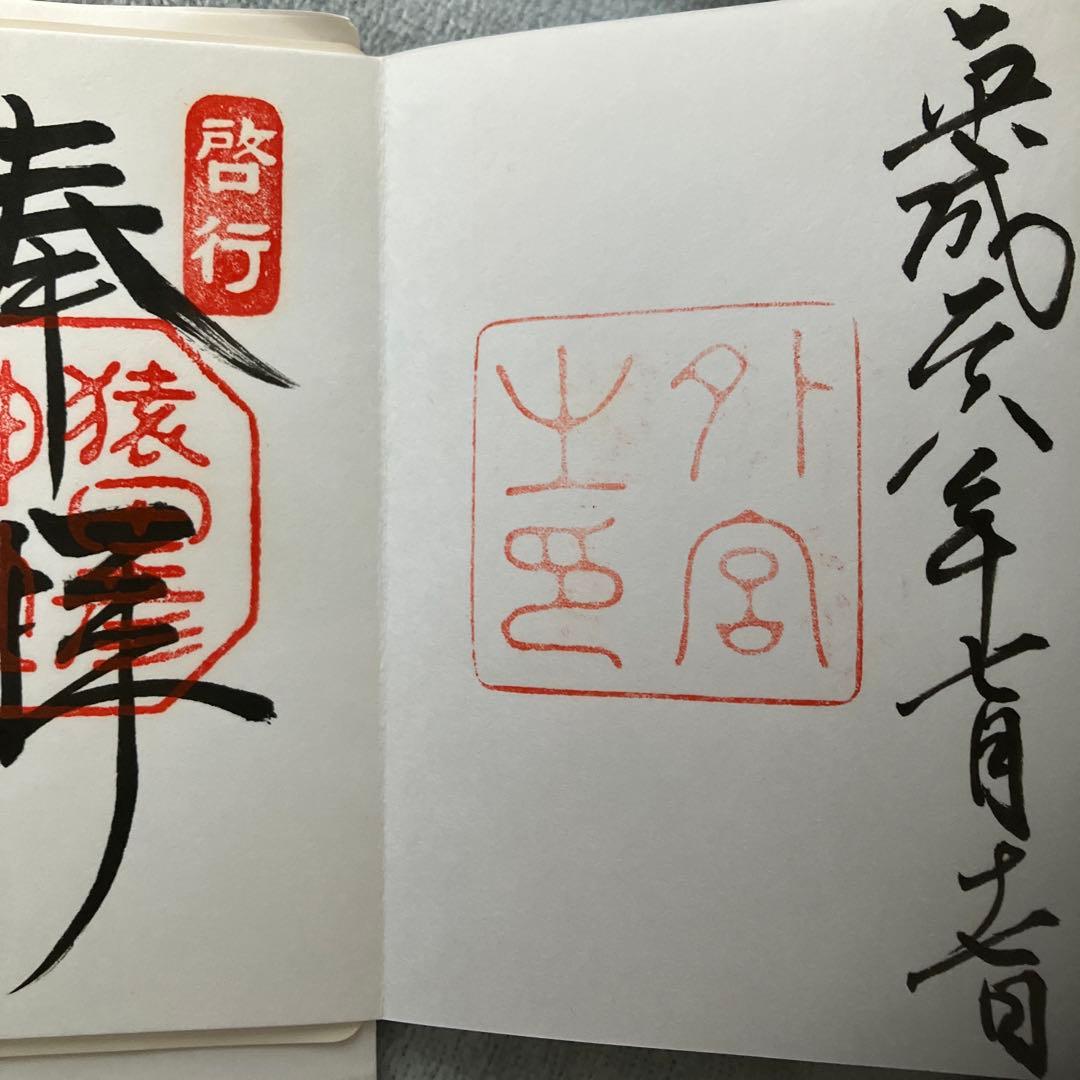 平成二十八年七月十七日
外宮
之印
啓行
奉拝
猿田彦